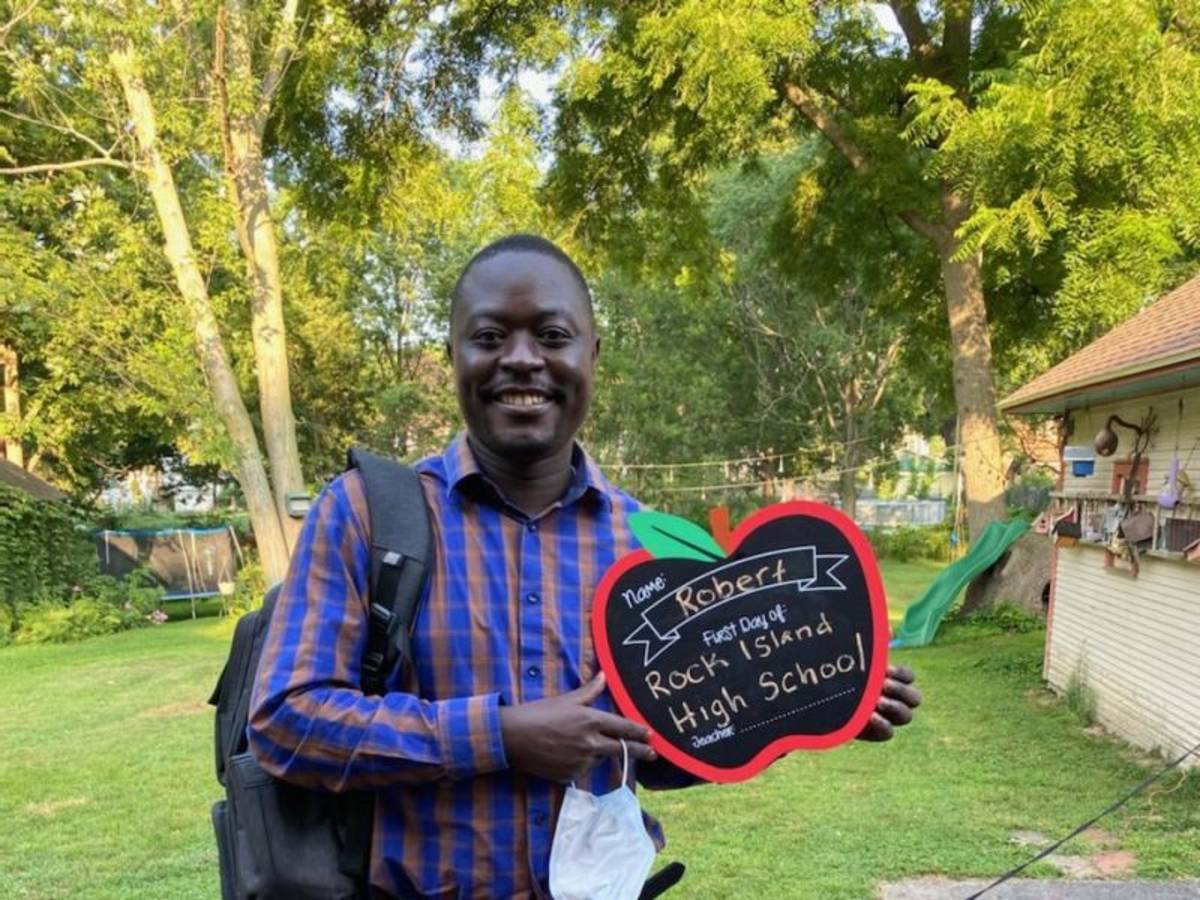 Name:
Robert
First Day of:
Rock Island
High School
Teacher: